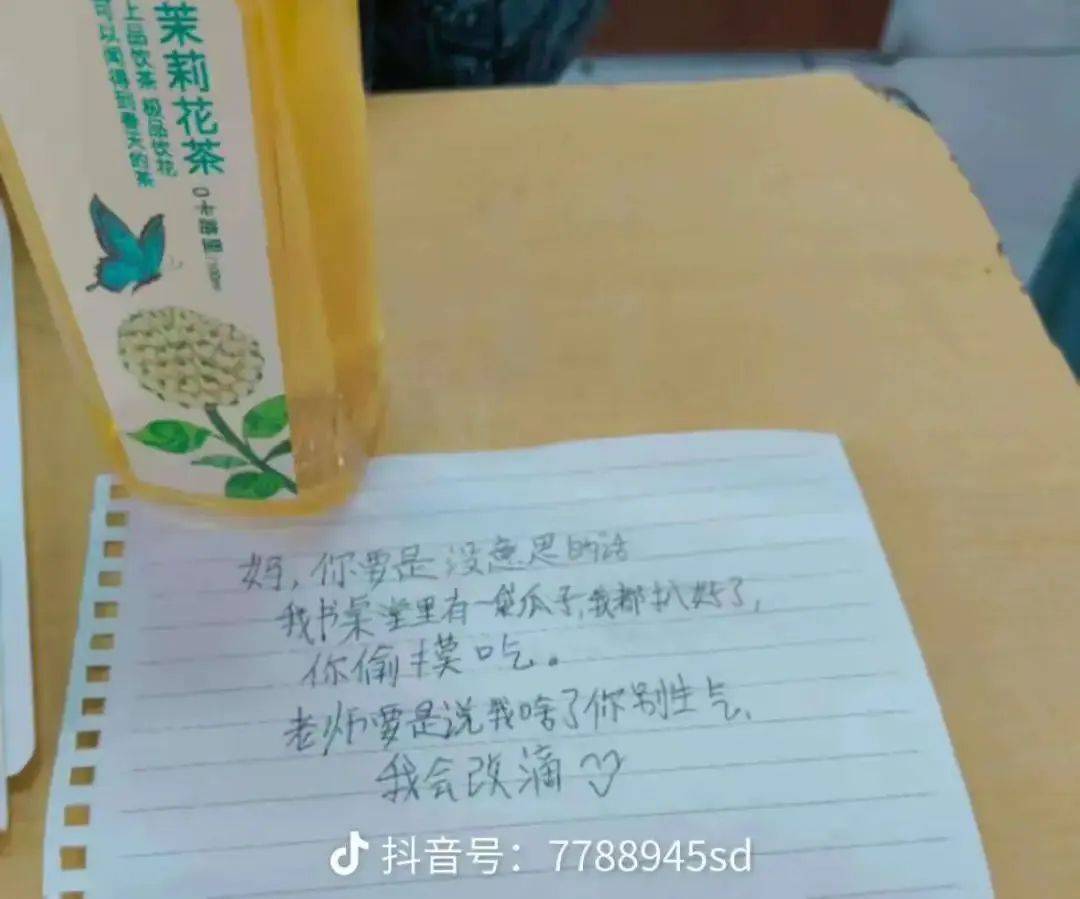 茉莉花茶
上品饮茶 极品饮花
可以闻得到春天的茶
0卡路里/100ml
妈,你要是没意思的话
我书桌堂里有一袋瓜子,我都扒好了,
你偷摸吃。
老师要是说我啥了你别生气、
我会改滴
抖音号:7788945sd